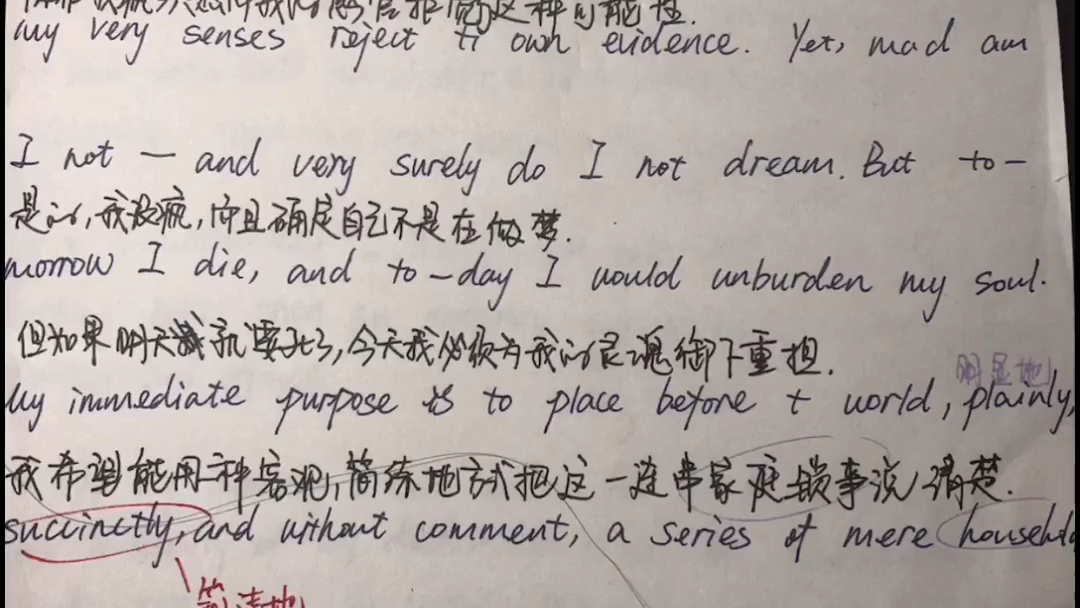 my very senses reject t own evidence. Yet, mad am
I not — and very surely do I not dream. But to-
是的,我没疯,而且确定自己不是在做梦.
morrow I die, and to-day I would unburden my soul.
但如果明天我就要死了,今天我必须为我的灵魂御下重担.
明显地
My immediate purpose is to place before t world, plainly,
我希望能用种客观,简练地方式把这一连串家庭锁事说清楚.
succinctly, and without comment, a series of mere household
简洁地